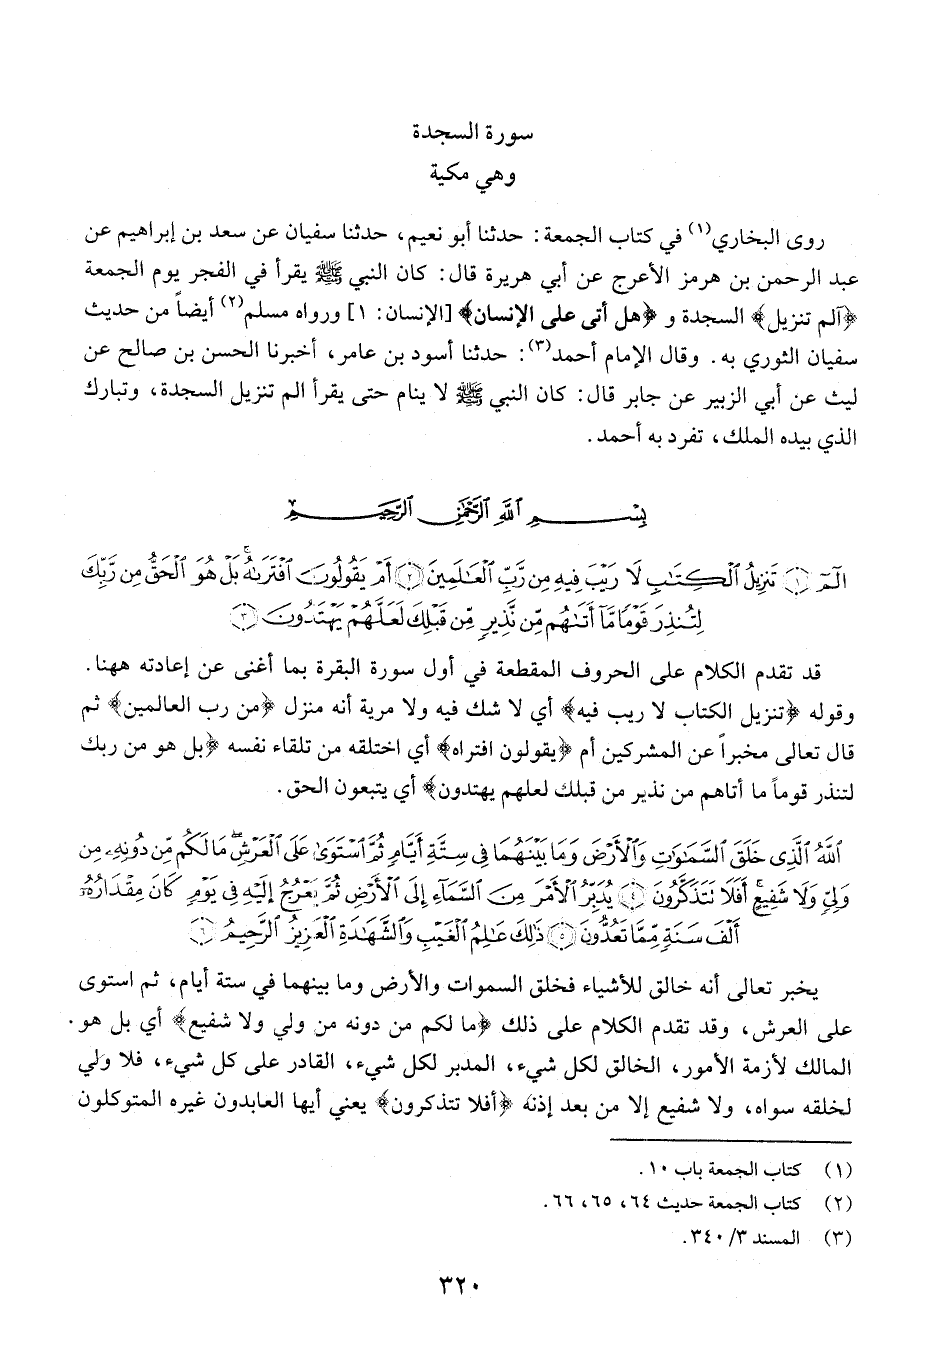 سورة السجدة
وهي مكية
روى البخاري(١) في كتاب الجمعة: حدثنا أبو نعيم، حدثنا سفيان عن سعد بن إبراهيم عن
عبد الرحمن بن هرمز الأعرج عن أبي هريرة قال: كان النبي ﷺ يقرأ في الفجر يوم الجمعة
﴿آلم تنزيل﴾ السجدة و ﴿هل أتى على الإنسان﴾ [الإنسان: ١] ورواه مسلم(٢) أيضاً من حديث
سفيان الثوري به. وقال الإمام أحمد(٣): حدثنا أسود بن عامر، أخبرنا الحسن بن صالح عن
ليث عن أبي الزبير عن جابر قال: كان النبي ﷺ لا ينام حتى يقرأ الم تنزيل السجدة، وتبارك
الذي بيده الملك، تفرد به أحمد.
بِسْمِ ٱللَّهِ ٱلرَّحْمَٰنِ ٱلرَّحِيمِ
الٓمٓ ﴿١﴾ تَنزِيلُ ٱلْكِتَٰبِ لَا رَيْبَ فِيهِ مِن رَّبِّ ٱلْعَٰلَمِينَ ﴿٢﴾ أَمْ يَقُولُونَ ٱفْتَرَىٰهُ ۚ بَلْ هُوَ ٱلْحَقُّ مِن رَّبِّكَ
لِتُنذِرَ قَوْمًا مَّآ أَتَىٰهُم مِّن نَّذِيرٍ مِّن قَبْلِكَ لَعَلَّهُمْ يَهْتَدُونَ ﴿٣﴾
قد تقدم الكلام على الحروف المقطعة في أول سورة البقرة بما أغنى عن إعادته ههنا.
وقوله ﴿تنزيل الكتاب لا ريب فيه﴾ أي لا شك فيه ولا مرية أنه منزل ﴿من رب العالمين﴾ ثم
قال تعالى مخبراً عن المشركين أم ﴿يقولون افتراه﴾ أي اختلقه من تلقاء نفسه ﴿بل هو من ربك
لتنذر قوماً ما أتاهم من نذير من قبلك لعلهم يهتدون﴾ أي يتبعون الحق.
ٱللَّهُ ٱلَّذِى خَلَقَ ٱلسَّمَٰوَٰتِ وَٱلْأَرْضَ وَمَا بَيْنَهُمَا فِى سِتَّةِ أَيَّامٍ ثُمَّ ٱسْتَوَىٰ عَلَى ٱلْعَرْشِ ۖ مَا لَكُم مِّن دُونِهِۦ مِن
وَلِىٍّ وَلَا شَفِيعٍ ۚ أَفَلَا تَتَذَكَّرُونَ ﴿٤﴾ يُدَبِّرُ ٱلْأَمْرَ مِنَ ٱلسَّمَآءِ إِلَى ٱلْأَرْضِ ثُمَّ يَعْرُجُ إِلَيْهِ فِى يَوْمٍ كَانَ مِقْدَارُهُۥٓ
أَلْفَ سَنَةٍ مِّمَّا تَعُدُّونَ ﴿٥﴾ ذَٰلِكَ عَٰلِمُ ٱلْغَيْبِ وَٱلشَّهَٰدَةِ ٱلْعَزِيزُ ٱلرَّحِيمُ ﴿٦﴾
يخبر تعالى أنه خالق للأشياء فخلق السموات والأرض وما بينهما في ستة أيام، ثم استوى
على العرش، وقد تقدم الكلام على ذلك ﴿ما لكم من دونه من ولي ولا شفيع﴾ أي بل هو
المالك لأزمة الأمور، الخالق لكل شيء، المدبر لكل شيء، القادر على كل شيء، فلا ولي
لخلقه سواه، ولا شفيع إلا من بعد إذنه ﴿أفلا تتذكرون﴾ يعني أيها العابدون غيره المتوكلون
(١) كتاب الجمعة باب ١٠.
(٢) كتاب الجمعة حديث ٦٤، ٦٥، ٦٦.
(٣) المسند ٣/ ٣٤٠.
٣٢٠